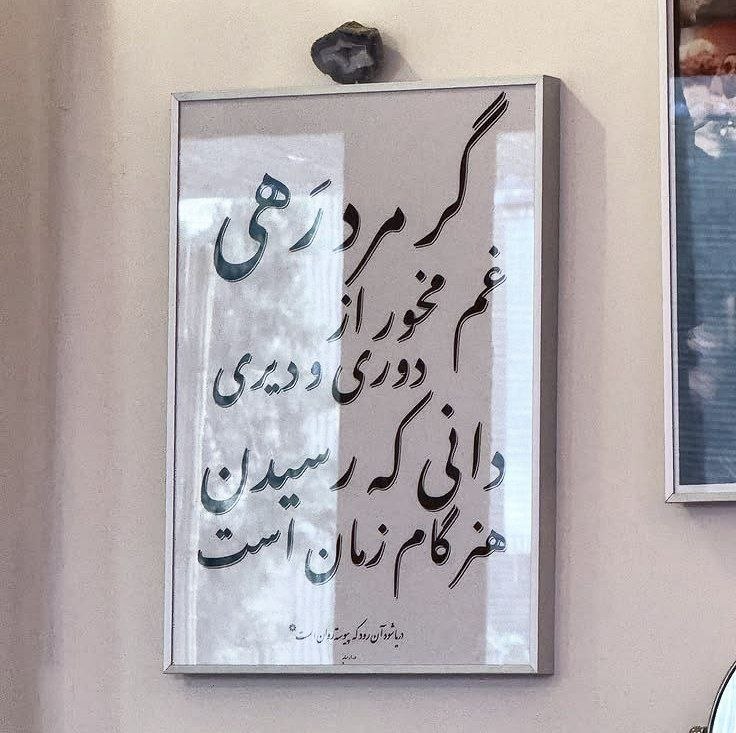 گر مرد رَهی
غم مخور از
دوری و دیری
دانی که رسیدن
هنر گام زمان است
دریا شود آن رود که پیوسته روان است